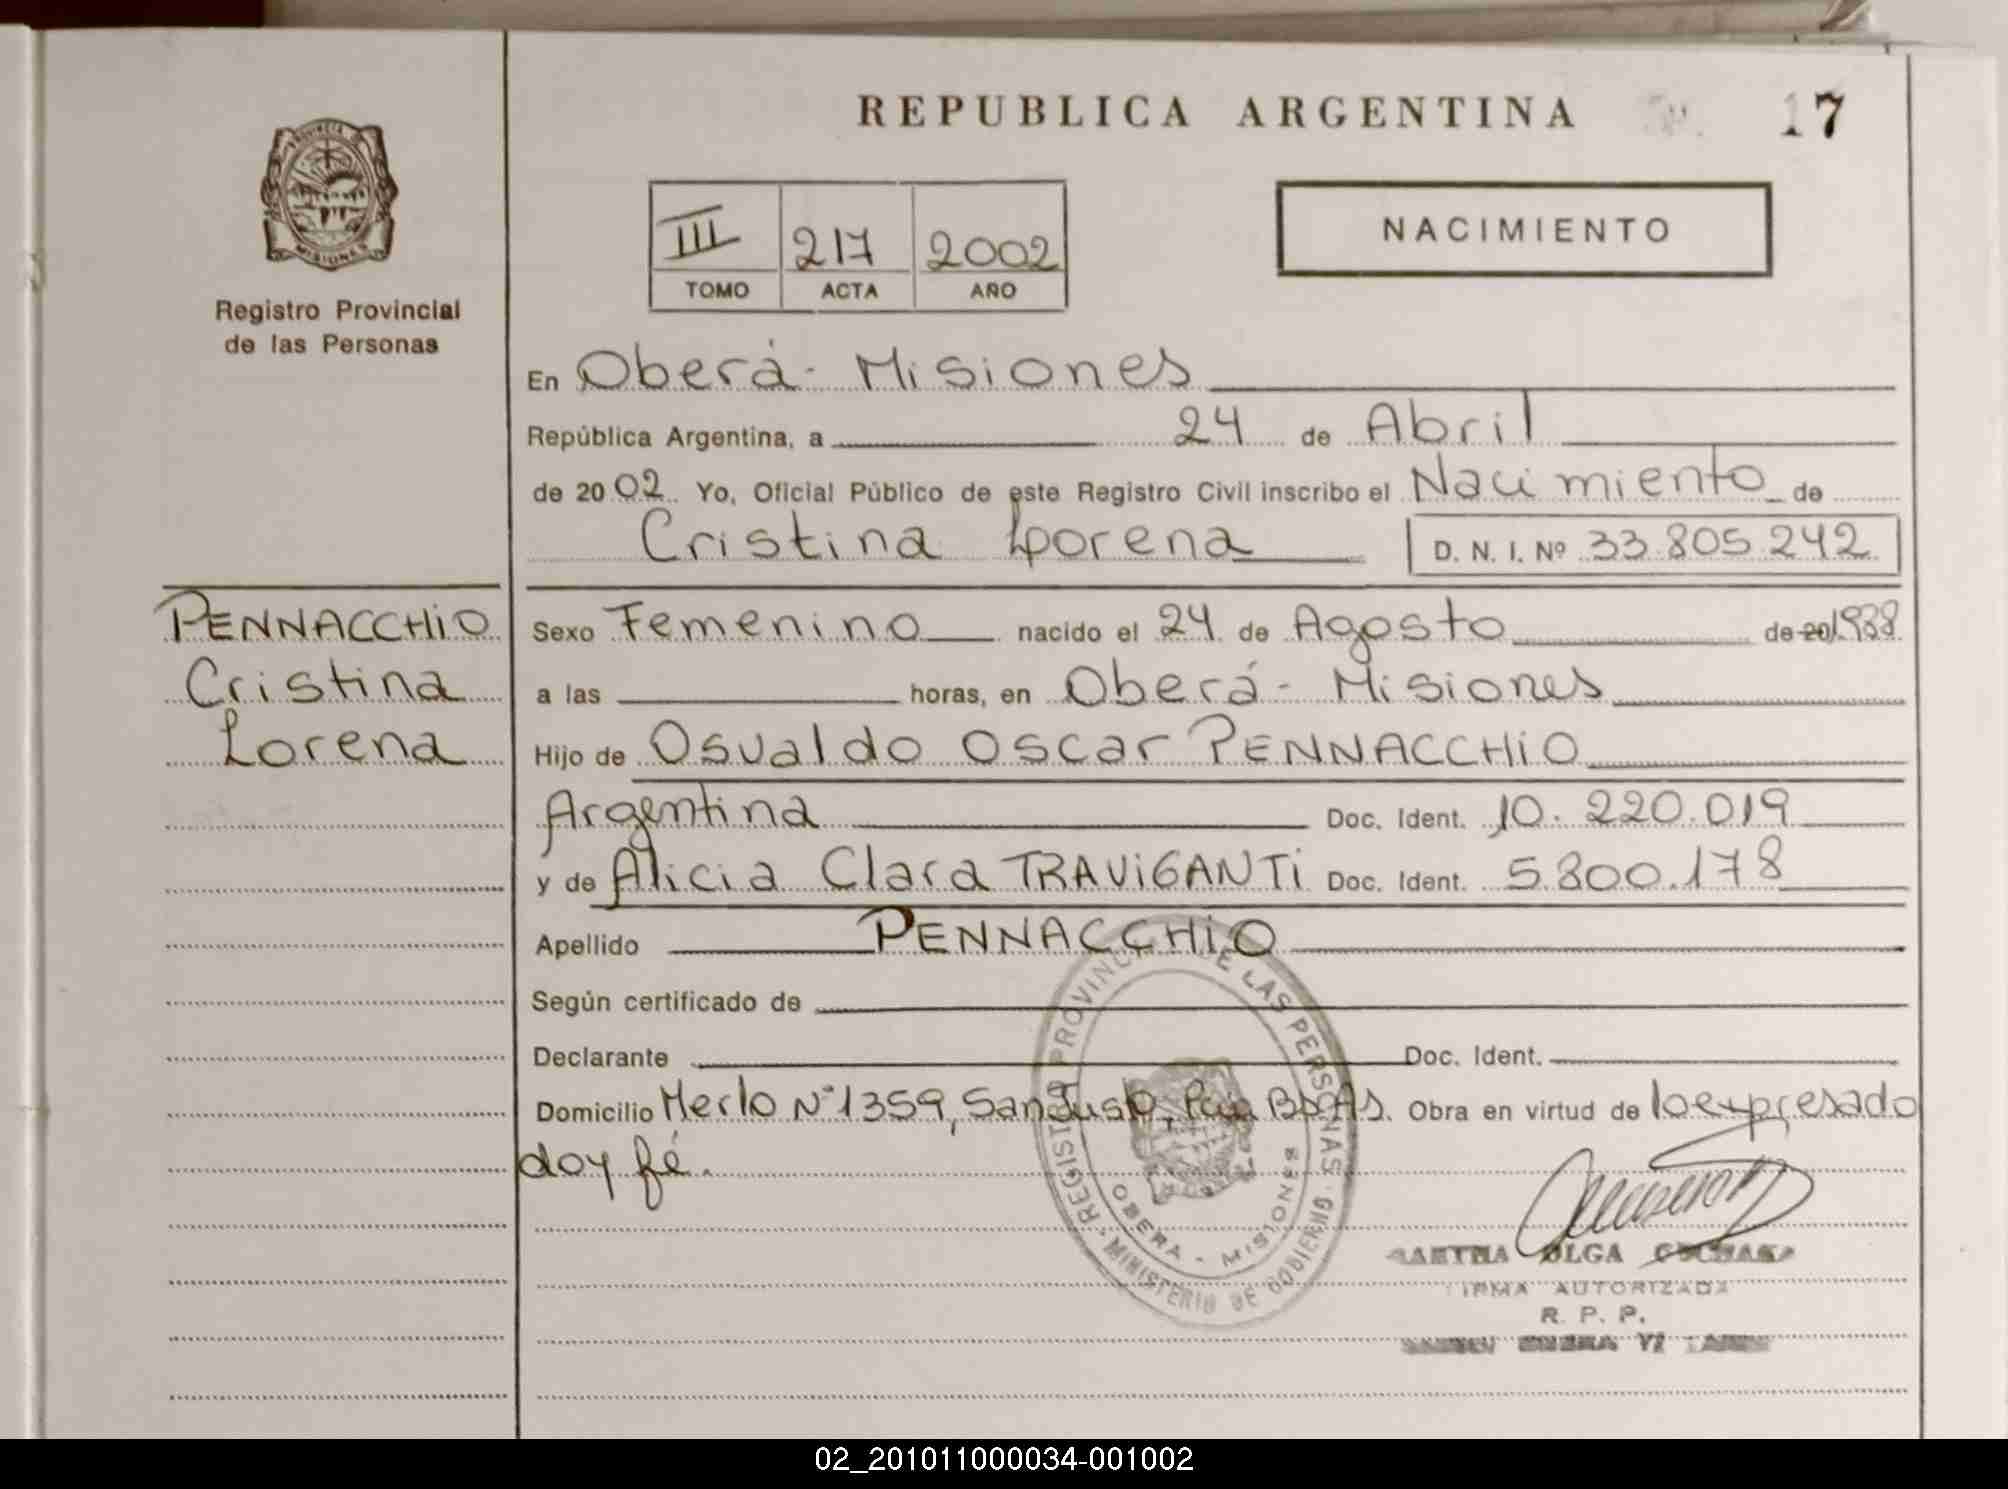 REPUBLICA ARGENTINA 17
PROVINCIA
MISIONES
Registro Provincial
de las Personas
III 217 2002
TOMO ACTA AÑO
NACIMIENTO
En Oberá - Misiones
República Argentina, a 24 de Abril
de 20 02 Yo, Oficial Público de este Registro Civil inscribo el Nacimiento de
Cristina Lorena D. N. I. Nº 33.805.242
PENNACCHIO
Cristina
Lorena
Sexo Femenino nacido el 24 de Agosto de 20 1988
a las horas, en Oberá - Misiones
Hijo de Osvaldo Oscar PENNACCHIO
Argentina Doc. Ident. 10.220.019
y de Alicia Clara TRAVIGANTI Doc. Ident. 5.800.178
Apellido PENNACCHIO
Según certificado de
Declarante Doc. Ident.
Domicilio Merlo Nº 1359, San Justo, Pcia Bs As. Obra en virtud de lo expresado
doy fé.
REGISTRO PROVINCIAL DE LAS PERSONAS
OBERA - MISIONES
MINISTERIO DE GOBIERNO
OLGA
FIRMA AUTORIZADA
R. P. P.
02_201011000034-001002